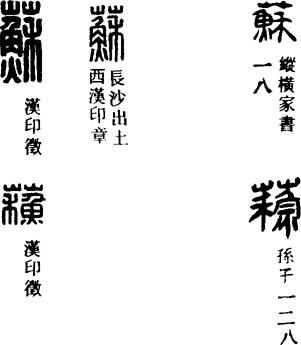 蘇
縱橫家書
一八
蘇
孫子一二八
蘇
長沙出土
西漢印章
蘇
漢印徵
蘇
漢印徵